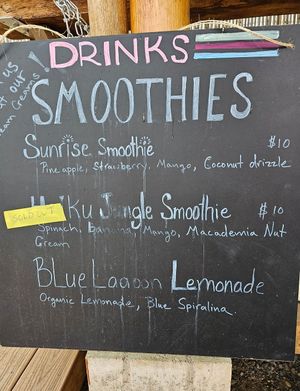 us
our
eam Creams!
DRINKS
SMOOTHIES
Sunrise Smoothie $10
Pineapple, Strawberry, Mango, Coconut drizzle
SOLD OUT
Jungle Smoothie $10
Spinach, banana, Mango, Macadamia Nut
Cream
BLue Lagoon Lemonade
Organic Lemonade, Blue Spiralina.